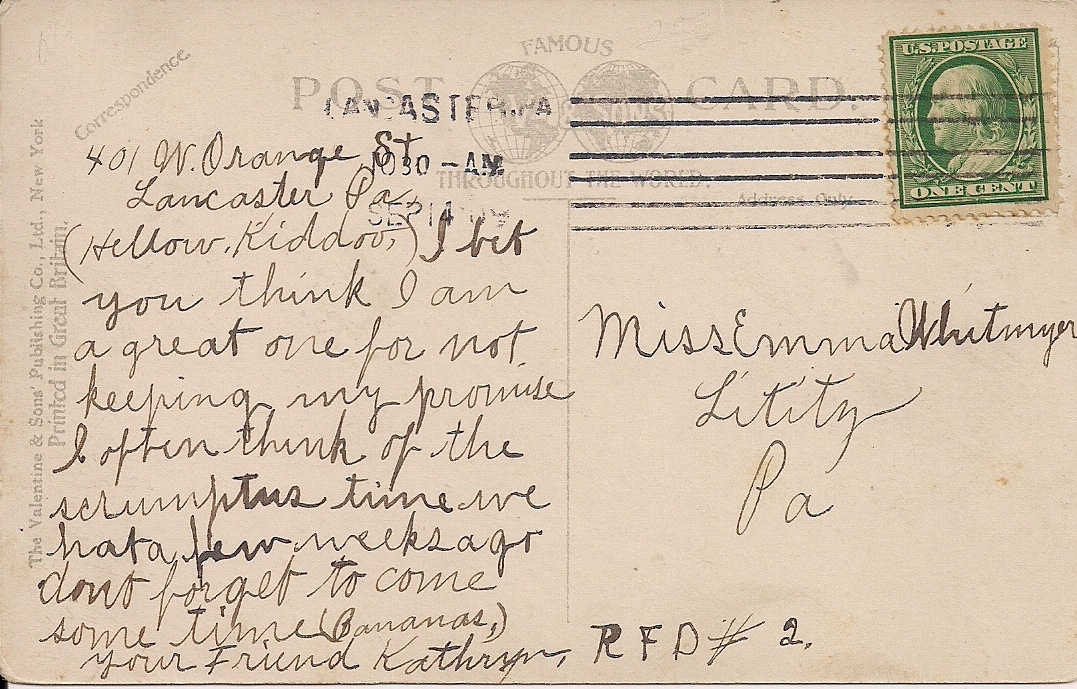 FAMOUS
POST CARD
THROUGHOUT THE WORLD.
Correspondence.
Address Only.
U.S. POSTAGE
ONE CENT
LANCASTER, PA
1030 - AM
SEP 14
The Valentine & Sons' Publishing Co., Ltd., New York
Printed in Great Britain.
401 W. Orange St
Lancaster Pa,
(Hellow, Kiddoo,) I bet
you think I am
a great one for not
keeping my promise
I often think of the
scrumptus time we
hat a few weeks ago
dont forget to come
some time (Bananas,)
your Friend Kathryn,
Miss Emma Whitmyer
Lititz
Pa
RFD # 2.